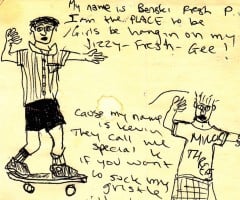 My name is Benski Fresh P.
I am the PLACE to be
Girls be hangin on my
Jizzy-Fresh-Gee!
Cause my name
is Kevin
They call me
special k
if you want
to suck my
gristle